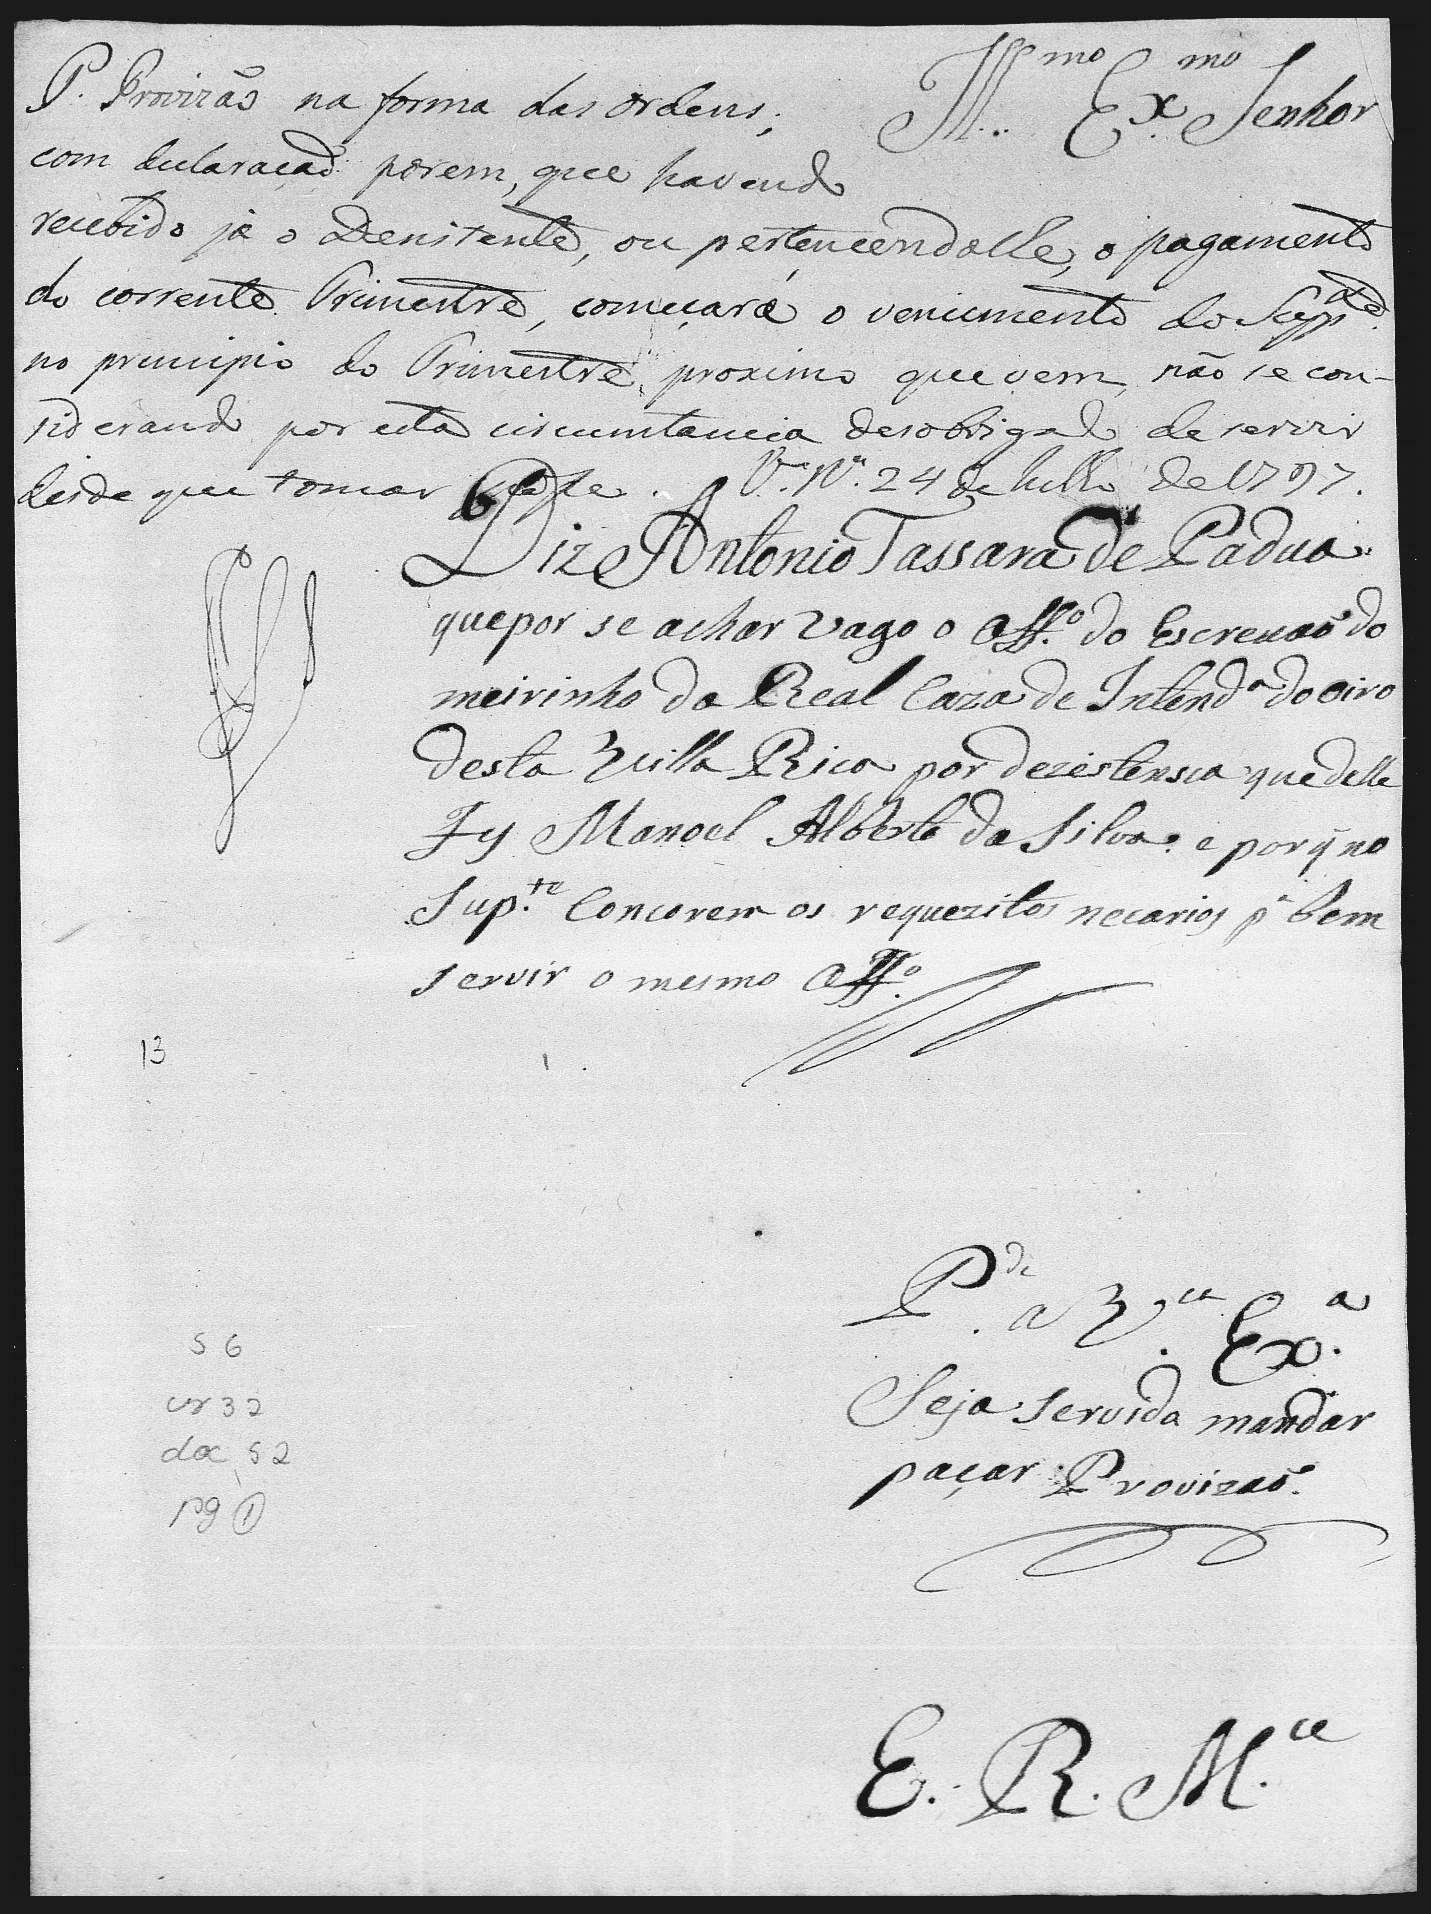 Ill.mo Ex.mo Senhor
P. Provizão na forma das ordens,
com declaração porem, que havendo
recebido já o Desistente, ou pertencendolle, o pagamento
do corrente Trimestre, começará o vencimento do Supp.te
no principio do Trimestre proximo que vem, não se con-
siderando por esta circumstancia desobrigado de servir
desde que tomar posse. V.a R.a 24 de Julho de 1797.
Diz Antonio Tassara de Padua
que por se achar vago o Off.o do Escrevaõ do
meirinho da Real Caza de Intend.a do oiro
desta Villa Rica por dezistensia que delle
Fes Manoel Alberto da Silva: e porq̃ no
Sup.te Concorem os requezitos necarios p.a bem
servir o mesmo Off.o
13
P.de a V.ca Ex.a
Seja servida mandar
paçar Provizaõ.
S 6
cx 32
doc 52
pg 1
E. R. M.ce